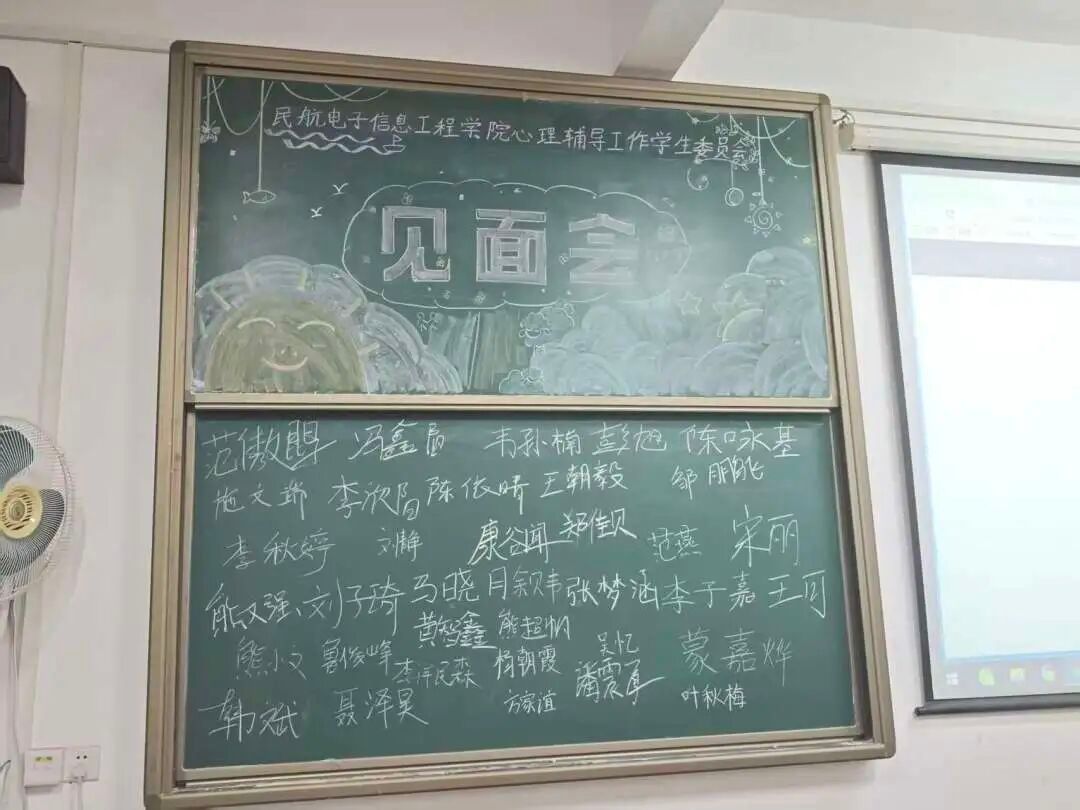 民航电子信息工程学院心理辅导工作学生委员会
见面会
冯鑫 韦孙楠 彭旭 陈咏基
施文瑞 李欣 陈依晴 王朝毅 邹鹏飞
李秋婷 刘静 康谷闻 郑佳贝 范燕 宋丽
刘子琦 马晓月 张梦涵 李子嘉 王可
黄智鑫 熊超帆
熊小文 鲁俊峰 杨朝霞 吴忆 蒙嘉烨
韩斌 聂泽昊 方家谊 叶秋梅